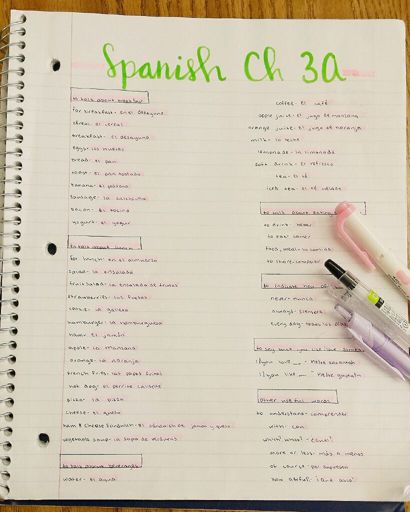 Spanish Ch 3A
to talk about breakfast
for breakfast- en el desayuno
cereal- el cereal
breakfast- el desayuno
eggs- los huevos
bread- el pan
toast- el pan tostado
banana- el plátano
sausage- la salchicha
bacon- el tocino
yogurt- el yogur
to talk about lunch
for lunch- en el almuerzo
salad- la ensalada
fruit salad- la ensalada de frutas
strawberries- las fresas
cookie- la galleta
hamburger- la hamburguesa
ham- el jamón
apple- la manzana
orange- la naranja
french fries- las papas fritas
hot dog- el perrito caliente
pizza- la pizza
cheese- el queso
ham & cheese sandwich- el sándwich de jamón y queso
vegetable soup- la sopa de verduras
to talk about beverages
water- el agua
coffee- el café
apple juice- el jugo de manzana
orange juice- el jugo de naranja
milk- la leche
lemonade- la limonada
soft drink- el refresco
tea- el té
iced tea- el té helado
to talk about eating
to drink- beber
to eat- comer
food, meal- la comida
to share- compartir
to indicate how
never- nunca
always- siempre
every day- todos los días
to say that you like
with- con
other useful words
to understand- comprender
which? what?- ¿cuál?
more or less- más o menos
of course- por supuesto
how awful!- ¡Qué asco!